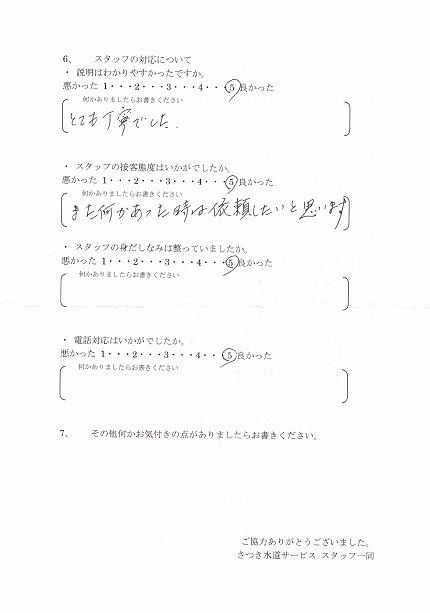 6、 スタッフの対応について
・ 説明はわかりやすかったですか。
悪かった 1・・・2・・・3・・・4・・・5 良かった
何かありましたらお書きください
とても丁寧でした.
・ スタッフの接客態度はいかがでしたか。
悪かった 1・・・2・・・3・・・4・・・5 良かった
何かありましたらお書きください
また何かあった時は依頼したいと思います
・ スタッフの身だしなみは整っていましたか。
悪かった 1・・・2・・・3・・・4・・・5 良かった
何かありましたらお書きください
・ 電話対応はいかがでしたか。
悪かった 1・・・2・・・3・・・4・・・5 良かった
何かありましたらお書きください
7、 その他何かお気付きの点がありましたらお書きください。
ご協力ありがとうございました。
さつき水道サービス スタッフ一同